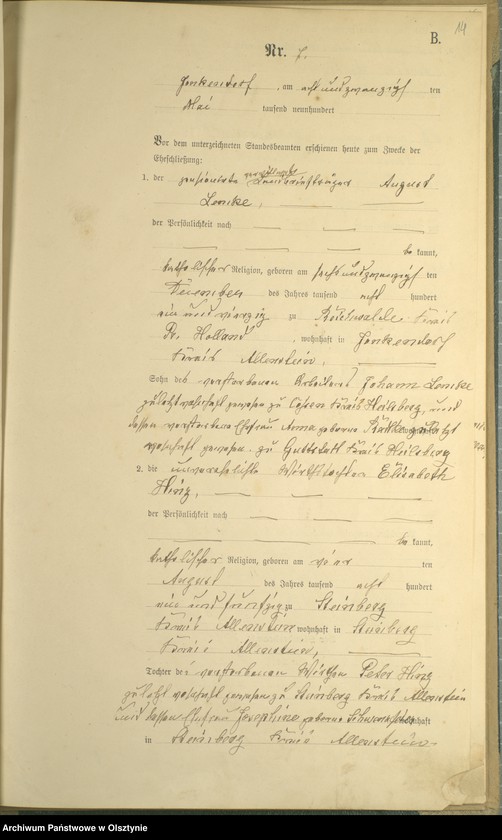 14
B.
Nr. 7.
Jonkendorf, am acht und zwanzigs ten
Mai tausend neunhundert
Vor dem unterzeichneten Standesbeamten erschienen heute zum Zwecke der
Eheschließung:
1. der pensionirte Landbriefträger August
Lemke,
der Persönlichkeit nach
be kannt,
katholischer Religion, geboren am sechs und zwanzigs ten
Dezember des Jahres tausend acht hundert
ein und vierzig zu Reichwalde Kreis
Pr. Holland, wohnhaft in Jonkendorf
Kreis Allenstein,
Sohn des verstorbenen Arbeiters Johann Lemke
zuletzt wohnhaft gewesen zu Kreis Heilsberg, und
dessen verstorbene Ehefrau Anna geborene zuletzt
wohnhaft gewesen zu Guttstadt Kreis Heilsberg
2. die unverehelichte Wirthstochter Elisabeth
Hinz,
der Persönlichkeit nach
be kannt,
katholischer Religion, geboren am ten
August des Jahres tausend acht hundert
ein und fünfzig zu Steinberg
Kreis Allenstein wohnhaft in Steinberg
Kreis Allenstein,
Tochter des verstorbenen Wirthen Peter Hinz
zuletzt wohnhaft gewesen zu Steinberg Kreis Allenstein
und dessen Ehefrau Josephine geborene wohnhaft
in Steinberg Kreis Allenstein
Archiwum Państwowe w Olsztynie